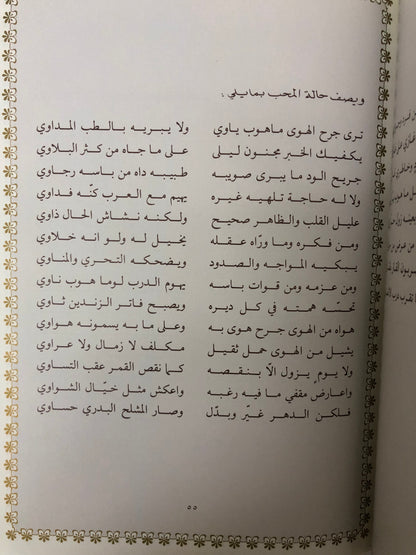 ويصف حالة المحب بمايلي :
ترى جرح الهوى ماهوب ياوي ولا يبريه بالطب المداوي
يكفيك الخبر مجنون ليلى على ما جاه من كثر البلاوي
جريح الود ما يبرى صويبه طبيبه داه من باسه رجاوي
ولا له حاجة تلهيه غيره يهيم مع العرب كنّه فداوي
عليل القلب والظاهر صحيح ولكنه نشاش الحال ذاوي
ومن فكره وما ورّاه عقله يخيل له ولو انه خلاوي
يبكيه المواجه والصدود ويضحكه التحري والمناوي
ومن عزمه ومن قوات باسه يهوم الدرب لوما هوب ناوي
تحتسّه همته في كل ديره ويصبح فاتر الزندين ثاوي
هواه من الهوى جرح هوى به وعلى ما به يسمونه هواوي
يشيل من الهوى حمل ثقيل مكلف لا زمال ولا عراوي
ولا يوم يزول الّا بنقصه كما نقص القمر عقب التساوي
واعارض مقفي ما فيه رغبه واعكش مثل خيّال الشواوي
فلكن الدهر غيّر وبدّل وصار المشلح البدري حساوي
٥٥